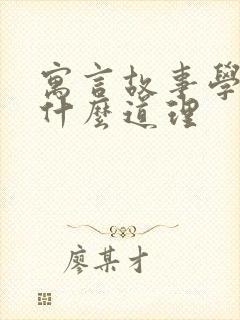 寓言故事學
什麼道理
廖某才